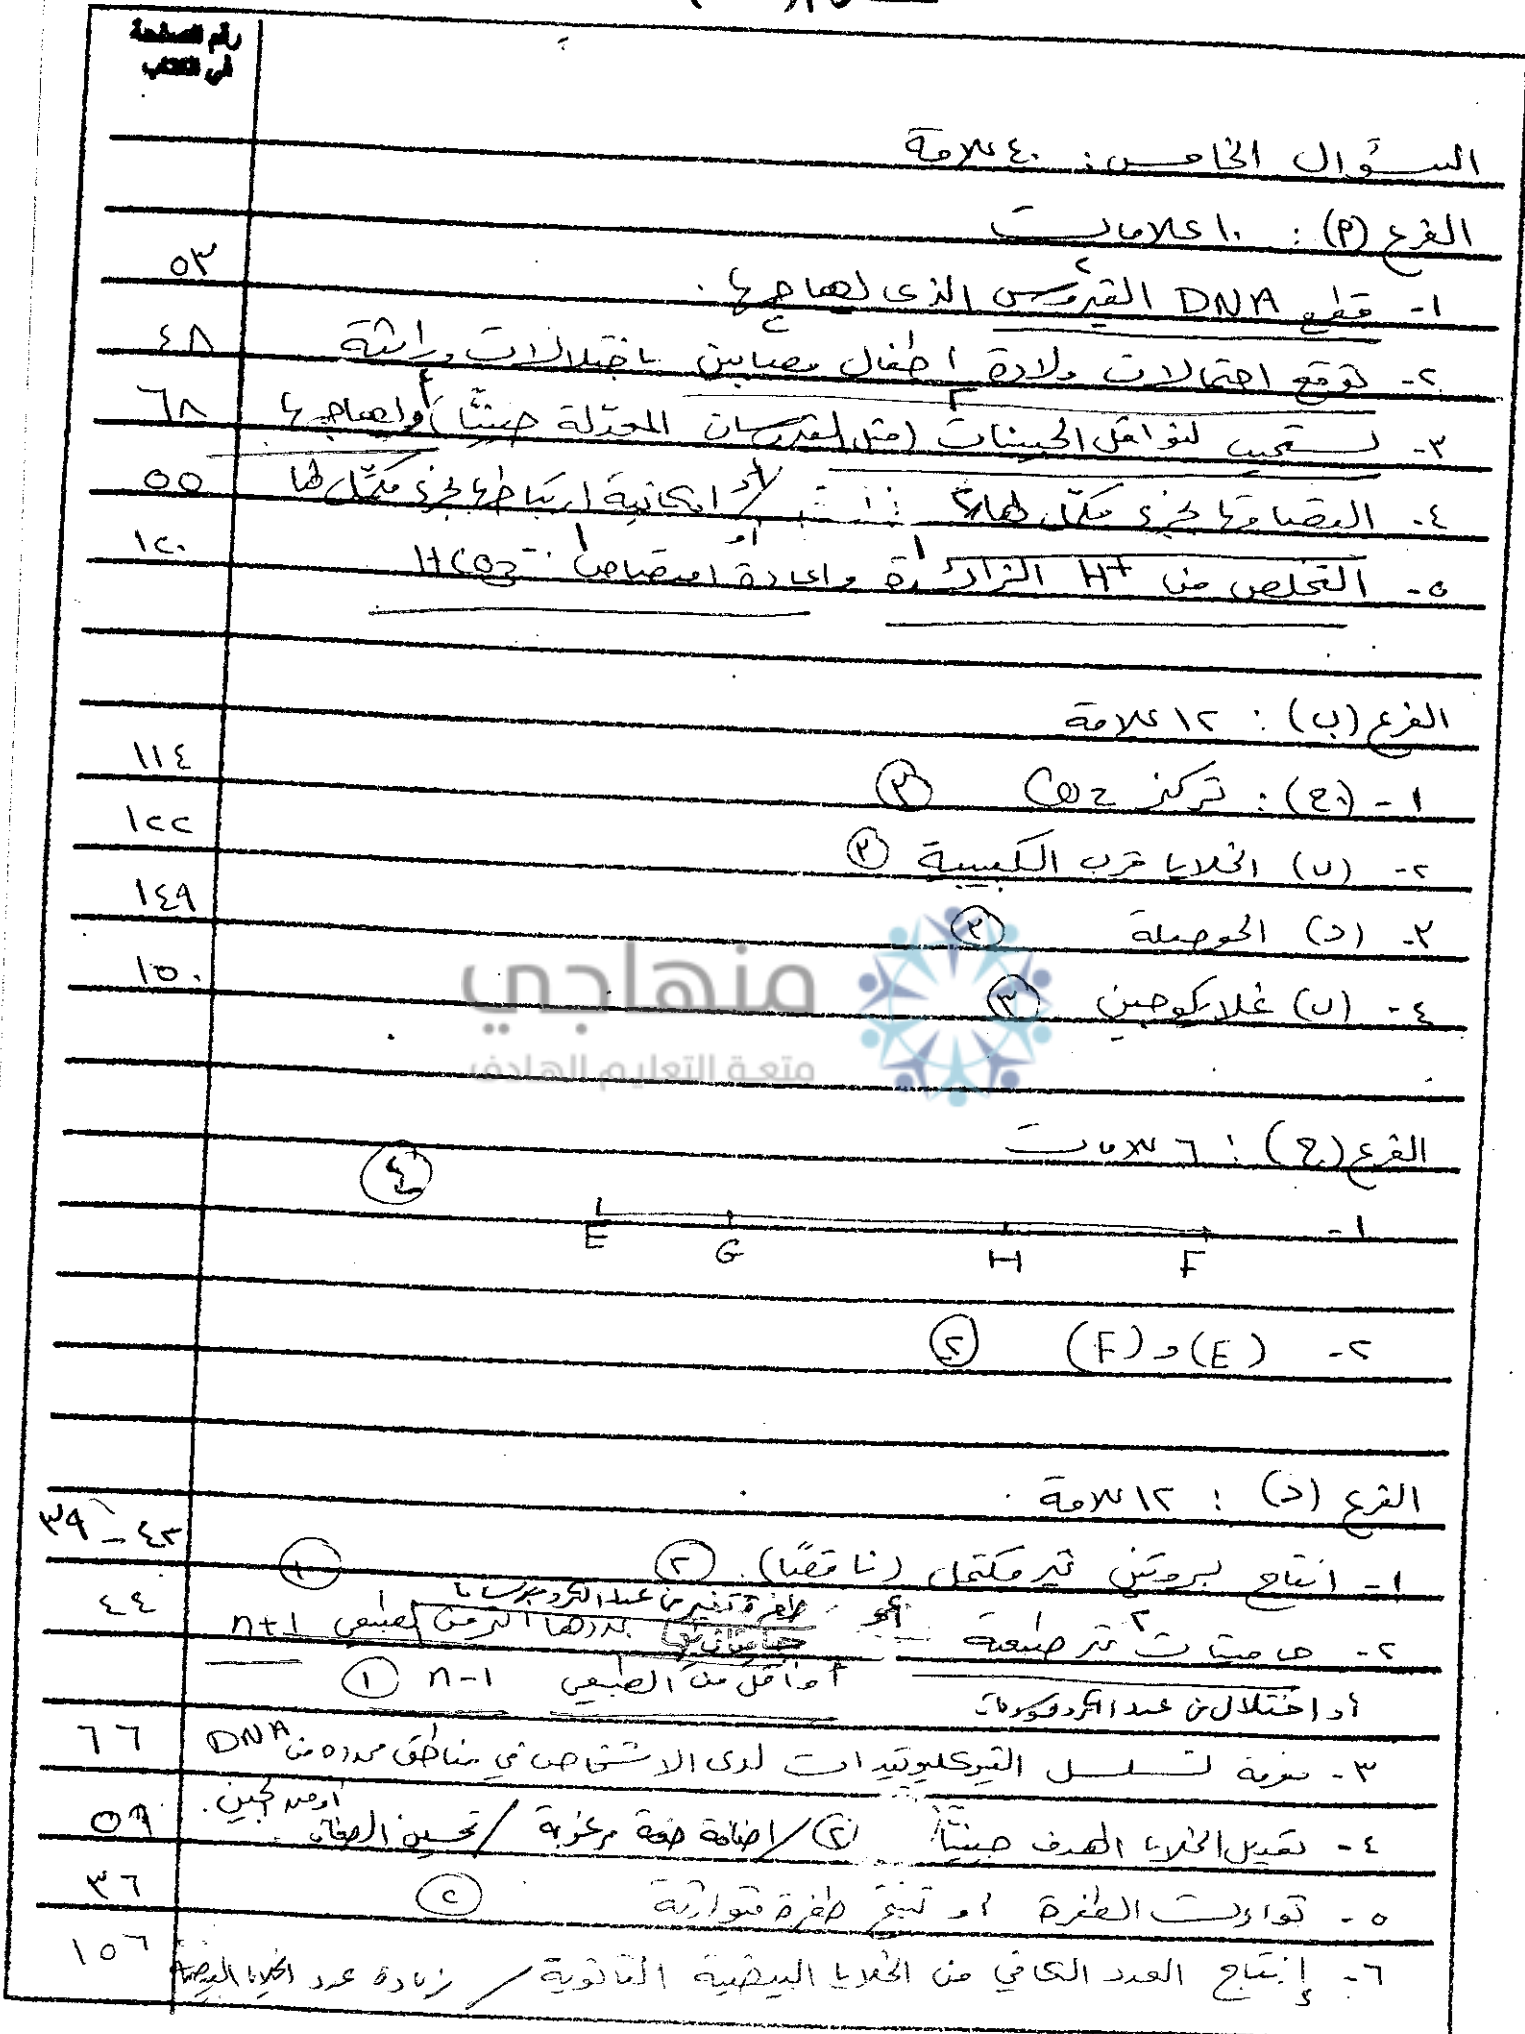 رقم الصفحة
في الكتاب
السؤال الخامس: ٤٠ علامة
الفرع (أ): ١٠ علامات
١- قطع DNA الفيروس الذي يهاجمها. ٥٣
٢- توقع احتمالات ولادة أطفال مصابين باختلالات وراثية ٤٨
٣- تستجيب لنواقل الجينات (مثل الفيروسات المعدّلة جينيًّا) أو تهاجمها ٦٨
٤- التصاقها بجزء مكمّل لها / أو إمكانية ارتباطها بجزء مكمّل لها ٥٥
٥- التخلص من H+ الزائدة أو إعادة امتصاص HCO3- ١٢٠
الفرع (ب): ١٢ علامة
١- (ج): تركيز CO2 ٣ ١١٤
٢- (ب) الخلايا قرب الكبيبية ٣ ١٢٢
٣- (د) الحوصلة ٣ ١٤٩
٤- (ب) غلايكوجين ٣ ١٥٠
منهاجي
متعة التعليم الهادف
الفرع (ج): ٦ علامات
٤
١- E G H F
٢- (E) و (F) ٢
الفرع (د): ١٢ علامة
١- إنتاج بروتين غير مكتمل (ناقصًا). ٢ ٣٩-٤٢
٢- جاميتات غير طبيعية أو طفرة تغير في عدد الكروموسومات عددها أكثر من الطبيعي n+1 ٤٤
أو أقل من الطبيعي n-1 ١
أو اختلال في عدد الكروموسومات
٣- معرفة تسلسل النيوكليوتيدات لدى الأشخاص في مناطق محددة من DNA ٦٦
أو من الجين.
٤- تعديل الخلايا الهدف جينيًّا ٢ / إضافة صفة مرغوبة / تحسين الصفات. ٥٩
٥- توارثت الطفرة أو تنتج طفرة متوارثة ٢ ٣٦
٦- إنتاج العدد الكافي من الخلايا البيضية الثانوية / زيادة عدد الخلايا البيضية ١٥٦